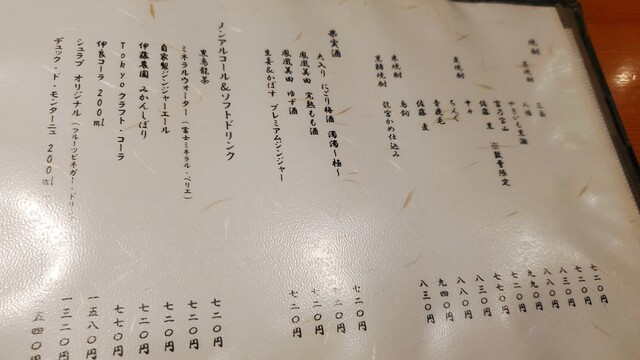 焼酎
芋焼酎
三岳 七二〇円
八幡 七二〇円
やきいも黒瀬 八三〇円
富乃宝山 八八〇円
佐藤 黒 ※数量限定 九九〇円
麦焼酎
中々 七二〇円
ちんぐ 七七〇円
青鹿毛 八三〇円
佐藤 麦 八八〇円
米焼酎 鳥飼 九四〇円
黒糖焼酎 龍宮かめ仕込み 八三〇円
果実酒
大入り にごり梅酒 濁濁～極～ 七二〇円
鳳凰美田 完熟もも酒 七二〇円
鳳凰美田 ゆず酒 七二〇円
生姜&かぼす プレミアムジンジャー 七二〇円
ノンアルコール&ソフトドリンク
黒烏龍茶 七二〇円
ミネラルウォーター（富士ミネラル・ペリエ） 七二〇円
自家製ジンジャーエール 七二〇円
伊藤農園 みかんしぼり 七二〇円
Tokyoクラフト・コーラ 七七〇円
伊良コーラ 200ml 一五八〇円
シュラブ オリジナル（フルーツビネガー・ドリ 一三二〇円
デュック・ド・モンターニュ 200ml 五四〇円